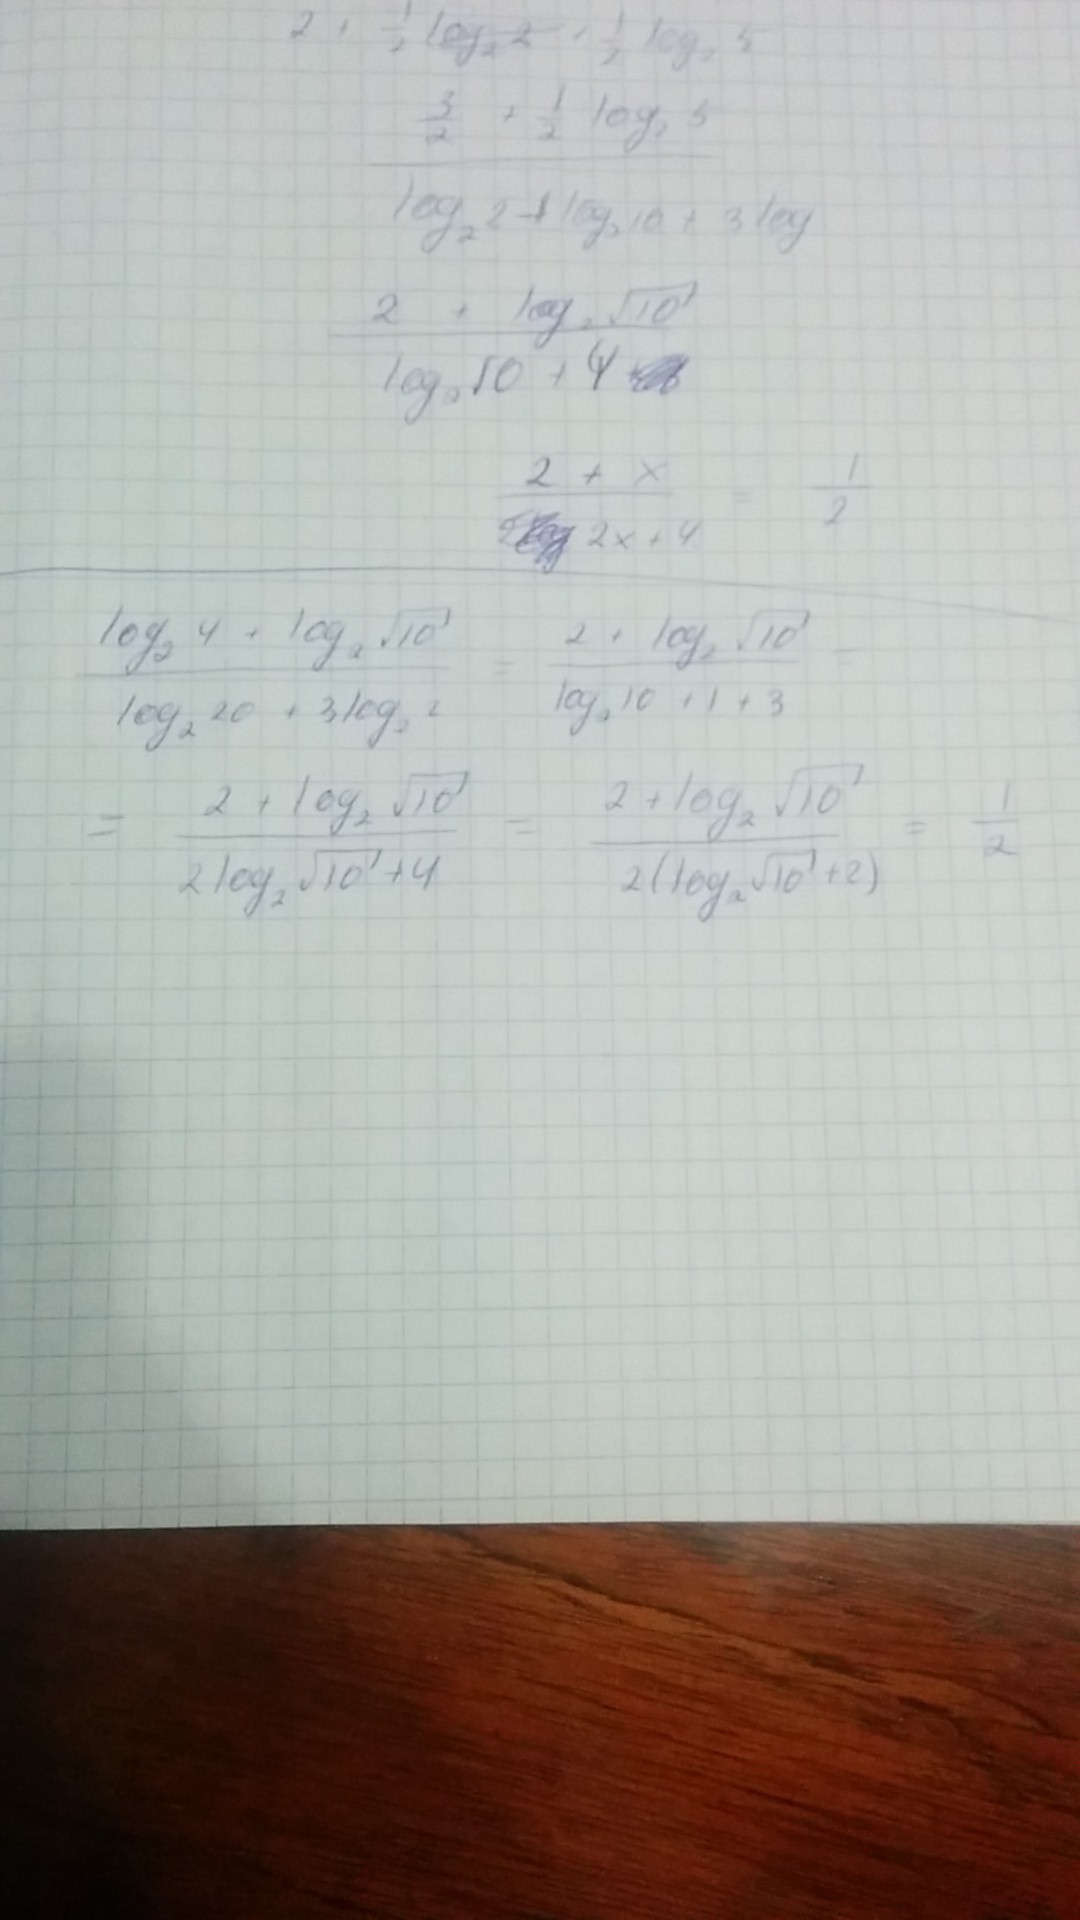 2 + 1/2 log₂ 2 + 1/2 log₂ 5
3/2 + 1/2 log₂ 5
log₂ 2 + log₂ 10 + 3 log
2 + log₂ √10
log₂ 10 + 4
2 + x = 1
2x + 4 2
log₂ 4 + log₂ √10 = 2 + log₂ √10 =
log₂ 20 + 3 log₂ 2 log₂ 10 + 1 + 3
= 2 + log₂ √10 = 2 + log₂ √10 = 1
2 log₂ √10 + 4 2(log₂ √10 + 2) 2